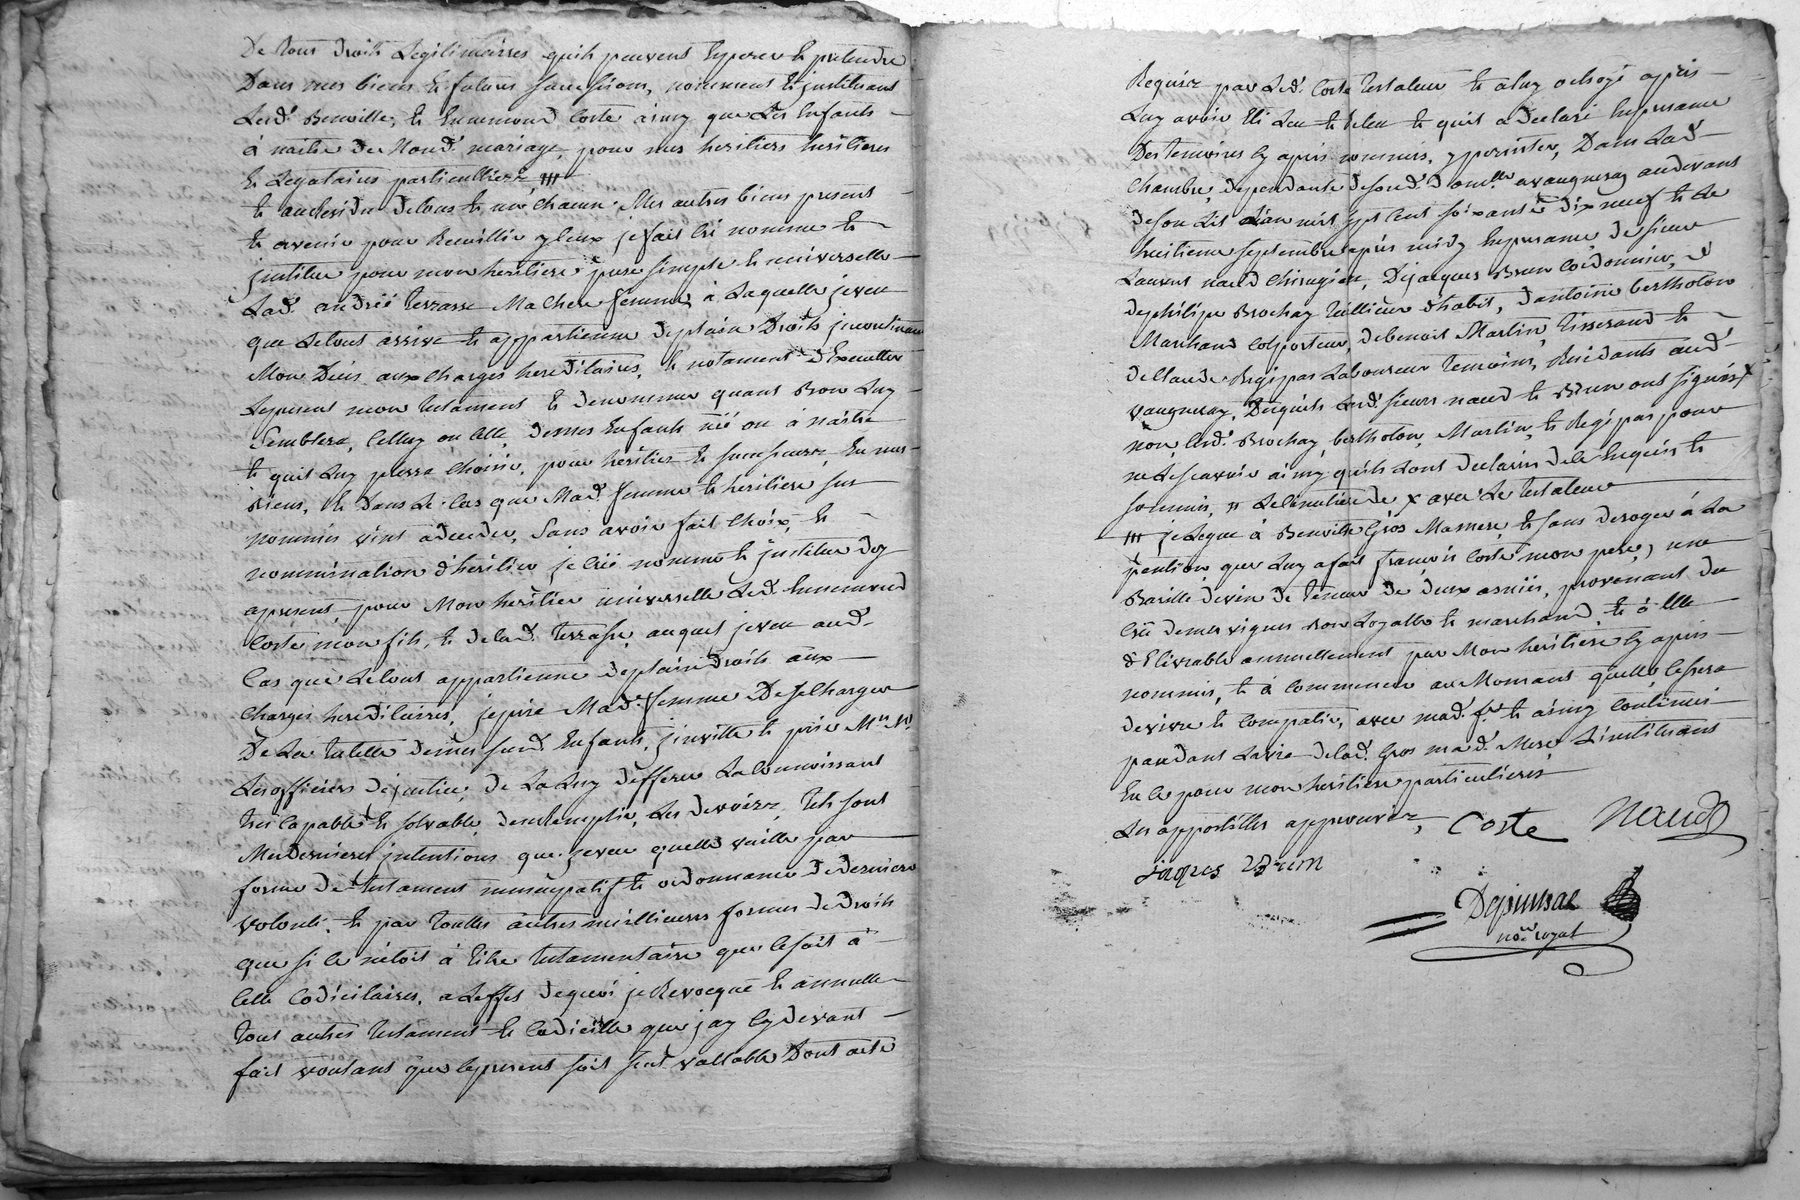 De tous droits Legitimaires quils peuvent Esperer et pretendre
Dans mes biens et future succession, nommant et instituant
Lesd. Benoitte, et Ennemond Coste ainsy que Les Enfants
à naitre de Nond. mariage, pour mes heritiers heritieres
Et Legataires particulliers, ///
Et au Residu de tous et un chacun Mes autres biens presents
Et avenir pour Recüillir yceux je fait Créé nomme et
jnstitue pour mon heritiere pure simple et universelle
Lad. andréé terrasse Ma Chere femme, à Laquelle je veu
que Le tout arrive et appartienne de plain Droits incontinant
Mon Deces aux Charges hereditaires, et notament d'Executter
Le present mon testament et de nommer quant Bon Luy
Semblera, Celluy ou Celle, de mes Enfants néé ou à naitre
Et quil Luy plerra Choisir, pour heritier et successeur, En mes
Biens, Et Dans Le Cas que Mad. femme et heritiere sus
nommée vint à deceder, Sans avoir fait Choix, et
nommination d'heritier je Créé nomme et jnstitue des
apresent pour Mon heritier universelle Led. Ennemond
Coste mon fils, et de lad. terrasse, auquel je veu aud.
Cas que Le tout appartienne de plain droits aux
Charges hereditaires, je prie Mad. femme De se Charger
De La tutelle de mes susd. Enfants, j'invitte et prie Mrs
Les officiers de justice, de La Luy defferer La Connoissant
tres Capable et solvable, d'en Remplir, Les devoirs, tels sont
Mes dernieres jntentions que je veu quelle vaille par
forme de testament nuncupatif et ordonnance de derniere
volonté, et par touttes autres meillieures formes de droits
que si Ce n'etoit à titre testamentaire que Ce soit à
Celle Codicilaires, a Leffet de quoi je Revocque et annulle
tout autres testament et Codicille que jay Cy devant
fait voulant que Le present soit seul vallable Dont acte
Requis par Led. Coste testateur et a Luy octroyé après
Luy avoir Eté Leu et Releu et quil a declaré En presance
Des temoins Cy apres nommés, y persister, Dans Lad.
Chambre, dependante de sond. domlle a vaugneray au devant
de son Lit L'an mil sept Cent soixante dix neuf et Le
huitieme septembre après midy En presance, de sieur
Laurent naud Chirugien, De jacques Brun Cordonnier,
de philipe Brochay tallieur d'habit, d'antoine bertholon
Marchand Colporteur, de benoit Martin, tisserand et
de Claude Regipas Laboureur temoins, Residants aud.
vaugneray, Desquels Lesd. sieurs naud et Brun ont signés x
non Lesd. Brochay, bertholon, Martin, et Regipas pour
ne Le scavoir ainsy quils Lont declarés de Ce Enquis et
sommés, x avec Le testateur
/// je Legue à Benoitte Gros Ma mere, et sans deroger à La
pention, que Luy a fait francois Coste mon pere, une
Barille de vin de teneur de deux asnéés, provenant du
Crû de mes vignes bon Loyalle et marchand, et à Elle
d'Elivrable annuellement par Mon heritiere Cy apres
nommée, et à Commencer au Momant quelle Cessera
de vivre et Compatir, avec mad. fe et ainsy Continuer
pandant La vie de lad. Gros mad. Mere, L'instituant
En Ce pour mon heritiere particulieres
Les appostilles approuvéz, Coste Naud
jaques Brun
nore royal